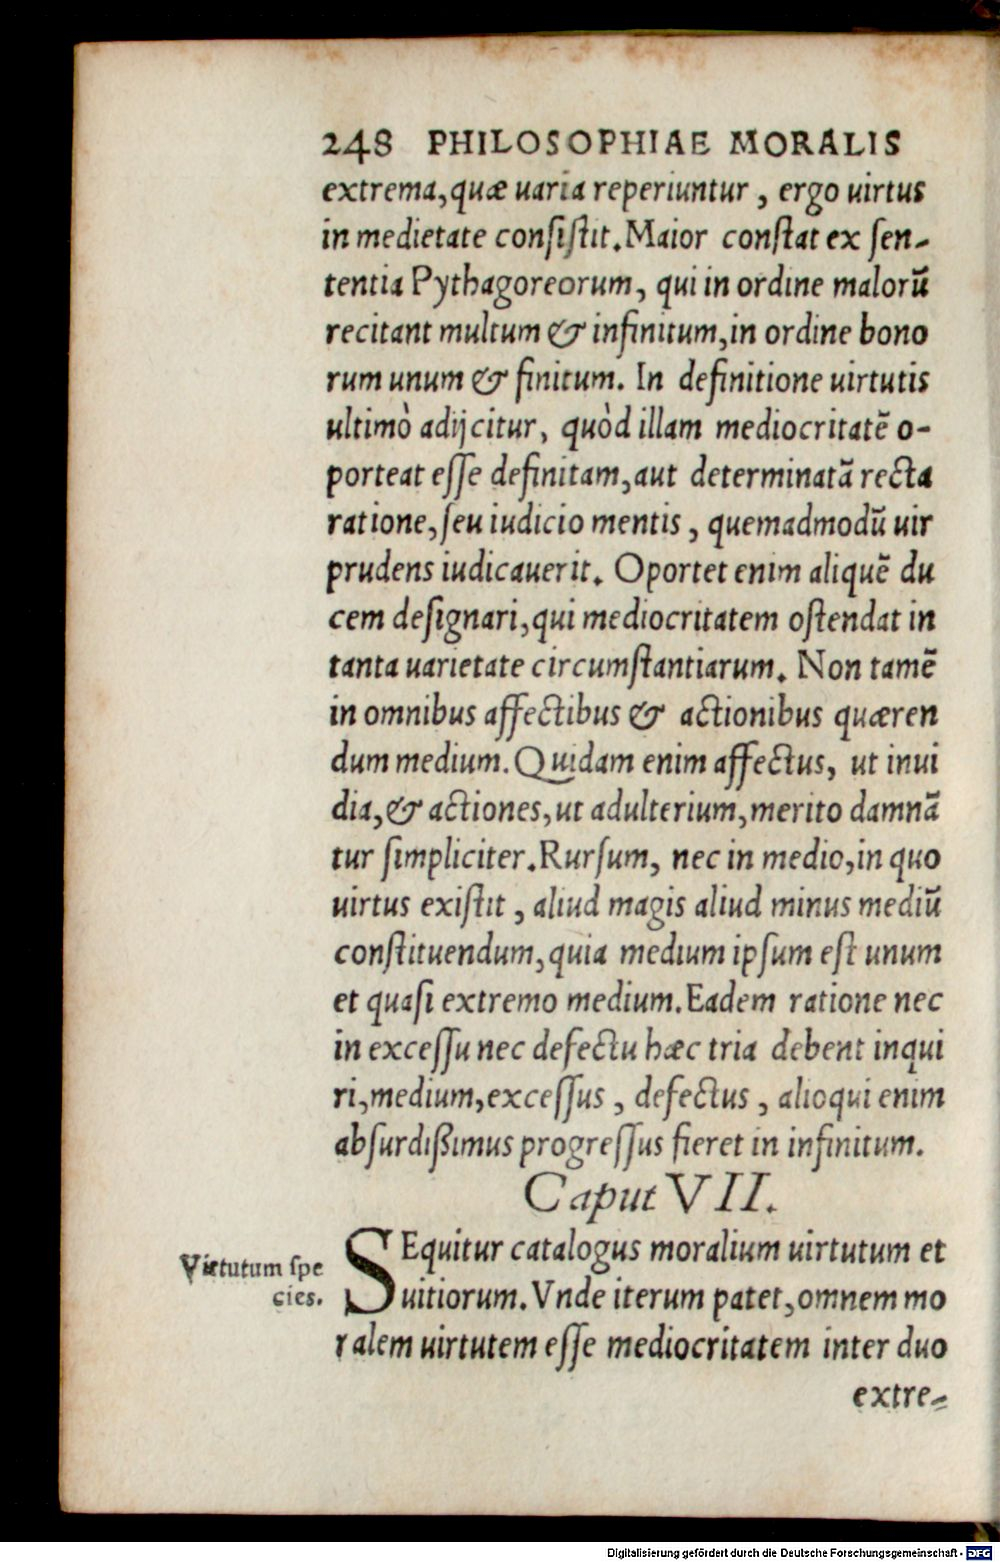 248 PHILOSOPHIAE MORALIS
extrema, quæ uaria reperiuntur, ergo uirtus
in medietate conſiſtit. Maior conſtat ex ſen-
tentia Pythagoreorum, qui in ordine malorũ
recitant multum & infinitum, in ordine bono
rum unum & finitum. In definitione uirtutis
ultimò adijcitur, quòd illam mediocritatẽ o-
porteat eſſe definitam, aut determinatã recta
ratione, ſeu iudicio mentis, quemadmodũ uir
prudens iudicauerit. Oportet enim aliquẽ du
cem deſignari, qui mediocritatem oſtendat in
tanta uarietate circumſtantiarum. Non tamẽ
in omnibus affectibus & actionibus quæren
dum medium. Quidam enim affectus, ut inui
dia, & actiones, ut adulterium, merito damnã
tur ſimpliciter. Rurſum, nec in medio, in quo
uirtus exiſtit, aliud magis aliud minus mediũ
conſtituendum, quia medium ipſum eſt unum
et quaſi extremo medium. Eadem ratione nec
in exceſſu nec defectu hæc tria debent inqui
ri, medium, exceſſus, defectus, alioqui enim
abſurdißimus progreſſus fieret in infinitum.
Caput VII.
SEquitur catalogus moralium uirtutum et
uitiorum. Vnde iterum patet, omnem mo
ralem uirtutem eſſe mediocritatem inter duo
extre-
Virtutum ſpe
cies.
Digitalisierung gefördert durch die Deutsche Forschungsgemeinschaft - DFG